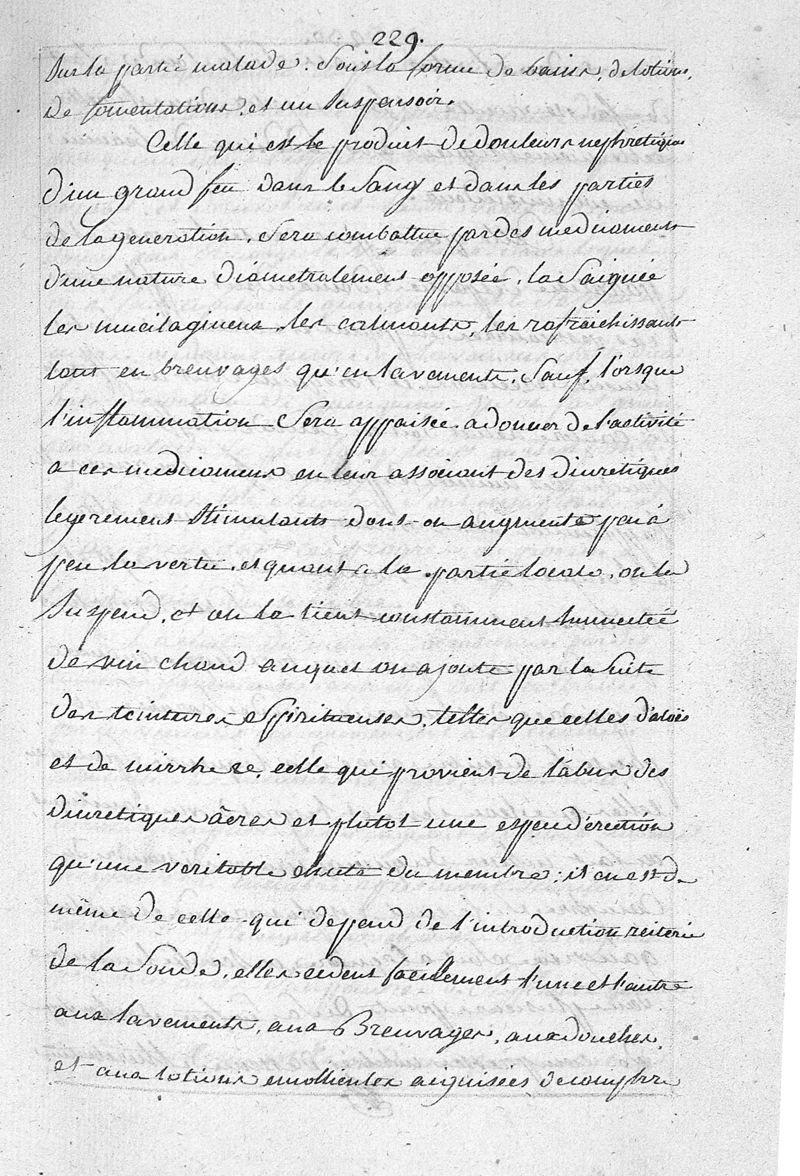 229.
Sur la partie malade. Sous la forme de bains, de lotions,
de fomentations, et un Suspensoir.
Celle qui est le produit de douleurs nephretiques
d'un grand feu dans le Sang et dans les parties
de la generation, Sera combattue par des medicaments
d'une nature diametralement opposée, la Saignée
les mucilagineux, les calmants, les rafraichissants
tant en breuvages qu'en lavements, Sauf, lorsque
l'inflammation Sera appaisée a donner de l'activité
a ces medicamens en leur associant des diuretiques
legerement stimulants dont on augmente peu à
peu la vertu, et quant à la partie locale, on la
Suspend, et on la tient constamment humectée
de vin chaud auquel on ajoute par la Suite
des teintures Spiritueuses, telles que celles d'aloës
et de mirrhe &c, celle qui provient de l'abus des
diuretiques âcres est plutot une espece d'érection
qu'une veritable chute du membre; il en est de
même de celle qui depend de l'introduction reiterée
de la Sonde, elles cedent facilement l'une et l'autre
aux lavements, aux Breuvages, aux douches,
et aux lotions emollientes aiguisées de camphre